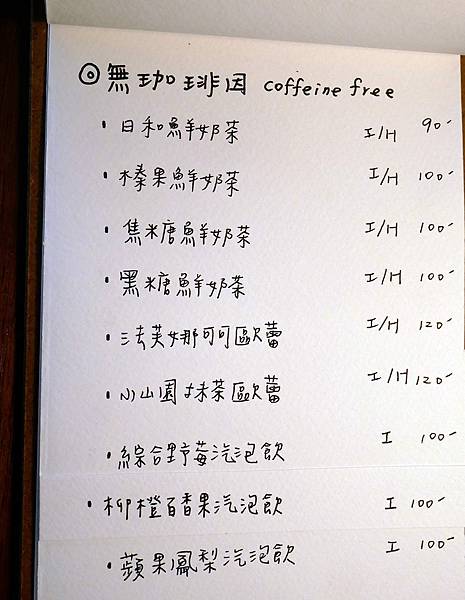 ◎無珈琲因 coffeine free
・日和鮮奶茶 I/H 90-
・榛果鮮奶茶 I/H 100-
・焦糖鮮奶茶 I/H 100-
・黑糖鮮奶茶 I/H 100-
・法芙娜可可歐蕾 I/H 120-
・小山園抹茶歐蕾 I/H 120-
・綜合野莓汽泡飲 I 100-
・柳橙百香果汽泡飲 I 100-
・蘋果鳳梨汽泡飲 I 100-